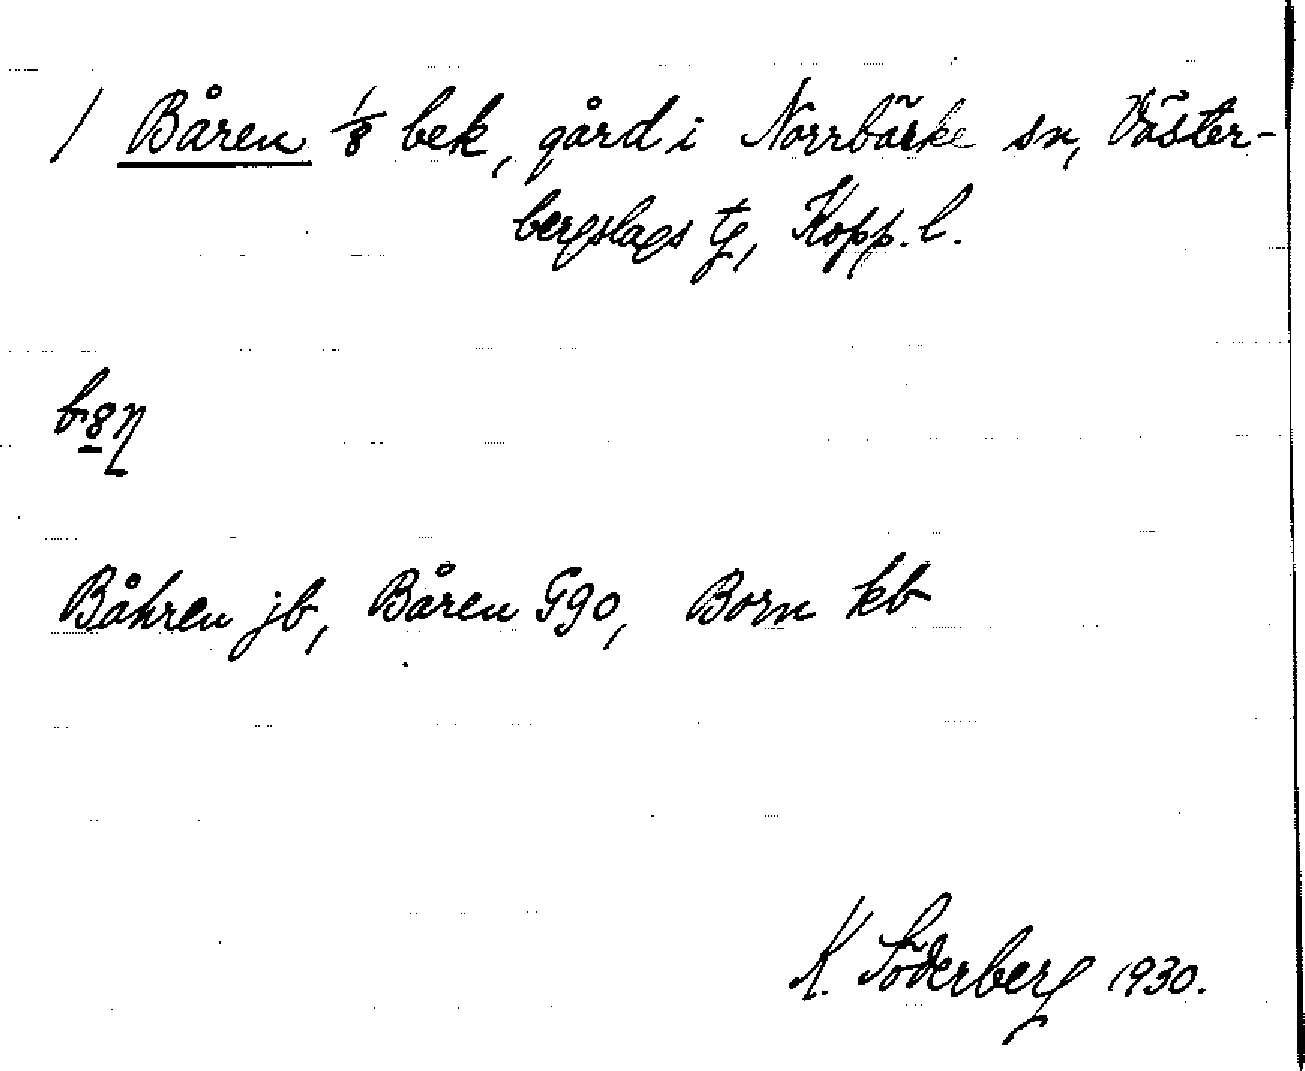 / Båren 1/8 bek, gård i Norrbärke sn, Väster-
bergslags tg, Kopp. l.
Båhren jb, Båren G90, Born kb
K. Söderberg 1930.